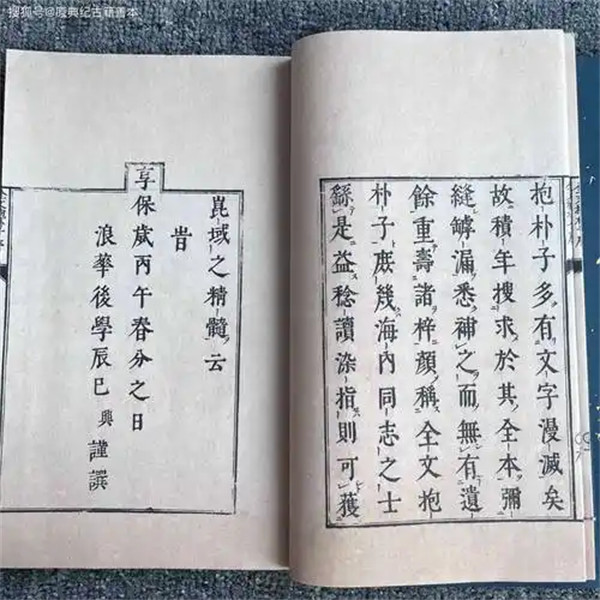 搜狐号@廈典纪古籍善本
抱朴子多有文字漫滅矣
故積年搜求於其全本彌
縫罅漏悉補之而無有遺
餘重壽諸梓顏稱全文抱
朴子庶幾海內同志之士
繇是益稔讀染指則可獲
崑域之精髓云
旹
享保歲丙午春分之日
浪華後學辰巳興謹撰